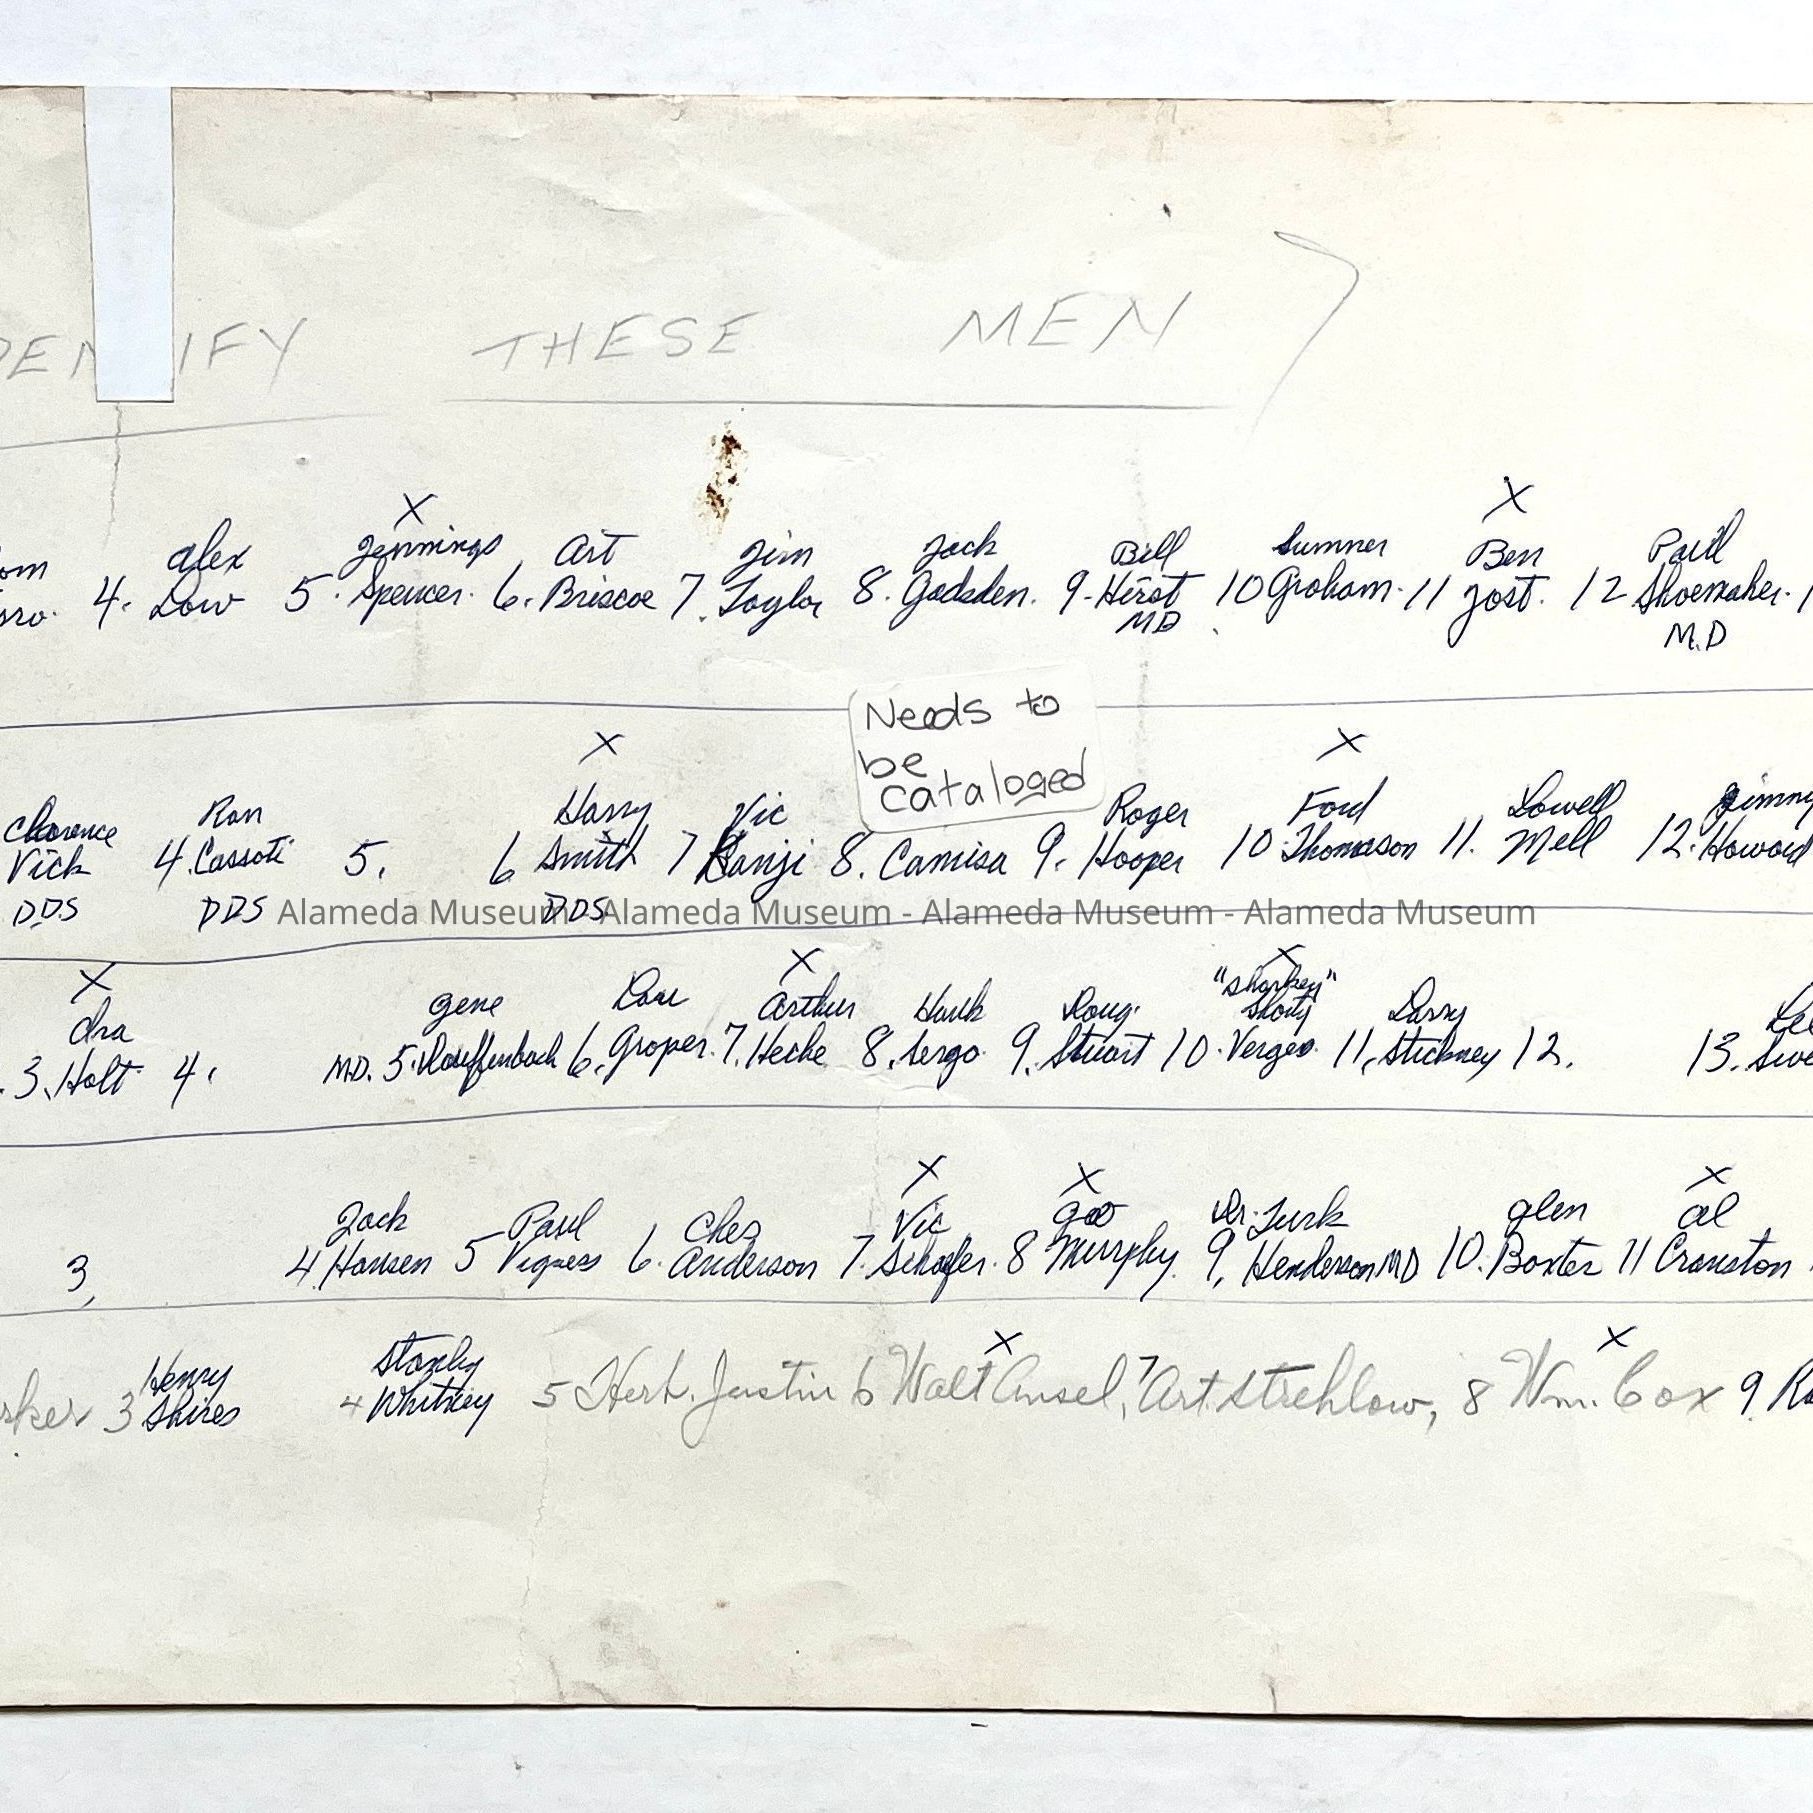 IFY THESE MEN
X X
Alex Jennings Art Jim Jack Bill Sumner Ben Paul
4. Low 5. Spencer. 6. Briscoe 7. Taylor 8. Gadsden. 9. Hirst 10 Graham. 11 Jost. 12 Shoemaker.
MD M.D
Needs to
be
cataloged
X X
Clarence Ron Harry Vic Roger Ford Lowell Jimmy
Vick 4. Cassoti 5. 6 Smith 7 8. Camisa 9. Hooper 10. Thomason 11. Mell 12. Howard
DDS DDS DDS
Alameda Museum - Alameda Museum - Alameda Museum - Alameda Museum
X X X
"Sharkey"
Ira Gene Arthur Hank Doug. Shorty Larry
3. Holt 4. M.D. 5. 6. Groper. 7. Heche 8. Sergo. 9. Stuart 10. Verges. 11. Stickney 12. 13.
X X X
Jack Paul Ches Vic Dr. Turk Glen Al
3, 4. Hansen 5 Vigness 6. Anderson 7. Schafer. 8 Murphy. 9, Henderson MD 10. Baxter 11 Cranston
X X
Henry Stanley
3 Shires 4 Whitney 5 Herb. Justin 6 Walt Ansel, 7 Art Strehlow, 8 Wm. Cox 9.